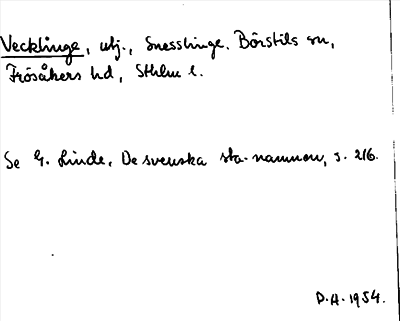 Vecklinge, utj., Snesslinge, Börstils sn,
Frösåkers hd, Sthlm l.
Se G. Linde, De svenska sta-namnen, s. 216.
D.A. 1954.